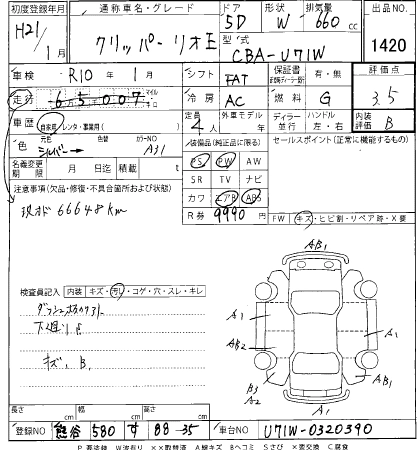 初度登録年月 通称車名・グレード ドア 形状 排気量 出品NO.
H21/1月 クリッパーリオE 5D W 660cc 1420
型式 CBA-U71W
車検 R10年1月 シフト FAT 保証書 有・無 評価点 3.5
走行 65007 マイル 冷房 AC 燃料 G
車歴 自家用 レンタ・事業用( ) 定員 4人 外車モデル ディーラー 並行 ハンドル 左・右 内装評価 B
色 シルバー 色替 カラーNO A31 装備品(純正品に限る) セールスポイント(正常に機能するもの)
名義変更期限 月 日 リ済 積込 PS PW AW
注意事項(欠品・修復・不具合箇所および状態) SR TV ナビ
現オド 66648km カワ エアB ABS
R券 9990 FW キズ・ヒビ割・リペア跡・X要
検査員記入 内装 キズ・汚れ・コゲ・穴・スレ・キレ
下廻りS
キズ、B、
AB1
A1 A1
AB2
B3 AB1
A2
A1
長さ cm 幅 cm 高さ cm
登録NO 熊谷 580 す 88-35 車台NO U71W-0320390
P要塗装 W波有り ××取替済 A線キズ Bヘコミ Sサビ ×要交換 C腐食